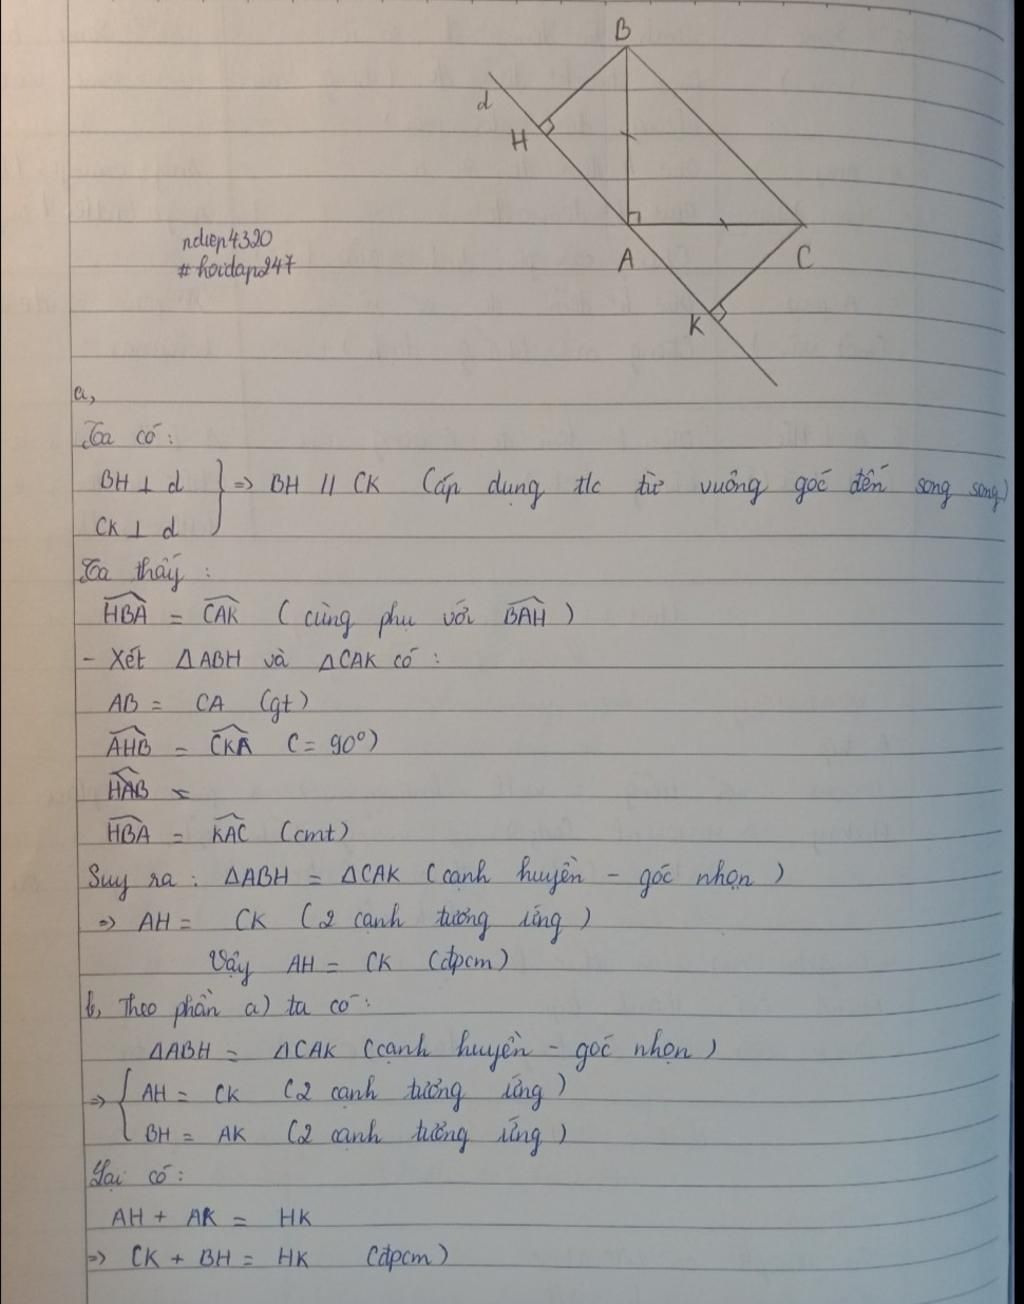 B
d
H
ndiep4320
#hoidap247
A
C
K
a,
Ta có:
BH ⊥ d
CK ⊥ d
} => BH // CK (áp dụng t/c từ vuông góc đến song song)
Ta thấy :
HBA = CAK ( cùng phụ với BAH )
- Xét ΔABH và ΔCAK có :
AB = CA (gt)
AHB = CKA (= 90°)
HAB =
HBA = KAC (cmt)
Suy ra : ΔABH = ΔCAK ( cạnh huyền - góc nhọn )
=> AH = CK ( 2 cạnh tương ứng )
Vậy AH = CK (đpcm)
b, Theo phần a) ta có :
ΔABH = ΔCAK (cạnh huyền - góc nhọn )
=> { AH = CK (2 cạnh tương ứng )
BH = AK (2 cạnh tương ứng )
Lại có :
AH + AK = HK
=> CK + BH = HK (đpcm)